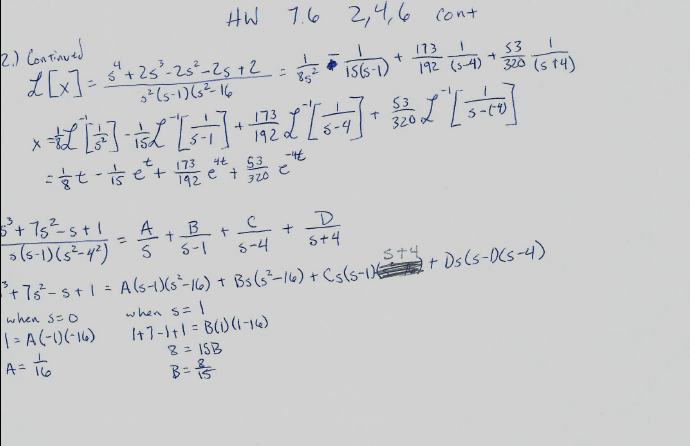 HW 7.6 2,4,6 cont
2.) Continued
L[x] = s⁴+2s³-2s²-2s+2 / s²(s-1)(s²-16 = 1/8s² - 1/15(s-1) + 173/192 1/(s-4) + 53/320 1/(s+4)
x = 1/8 L⁻¹[1/s²] - 1/15 L⁻¹[1/s-1] + 173/192 L⁻¹[1/s-4] + 53/320 L⁻¹[1/s-(-4)]
= 1/8 t - 1/15 e^t + 173/192 e^4t + 53/320 e^-4t
s³+7s²-s+1 / s(s-1)(s²-4²) = A/s + B/s-1 + C/s-4 + D/s+4
³+7s²-s+1 = A(s-1)(s²-16) + Bs(s²-16) + Cs(s-1)(s+4 + Ds(s-1)(s-4)
when s=0 when s=1
1=A(-1)(-16) 1+7-1+1=B(1)(1-16)
8=15B
A=1/16 B=8/15